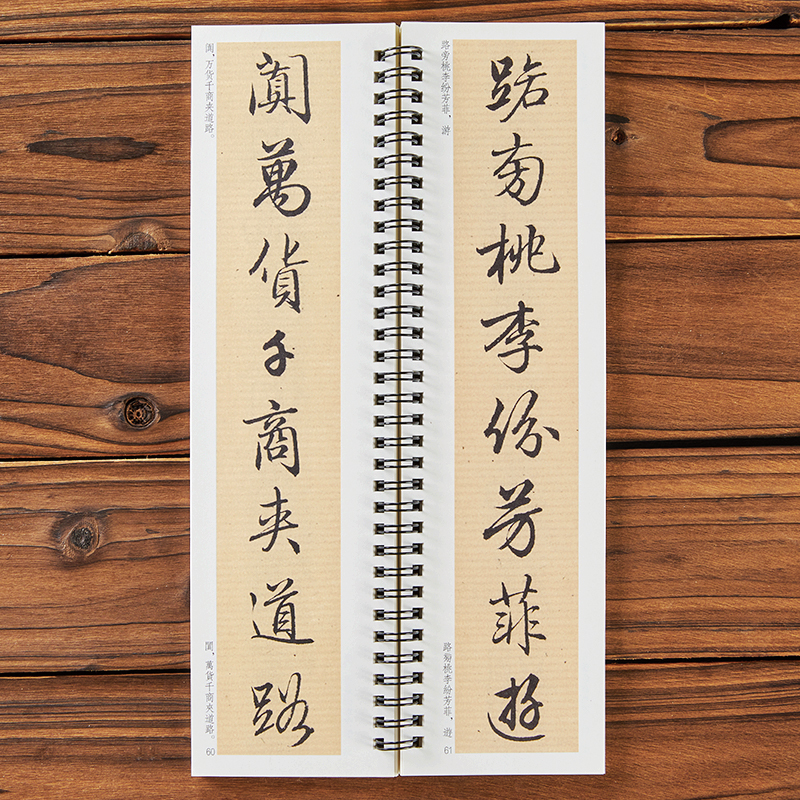 阗，万货千商夹道路。
闐萬貨千商夾道路
闐，萬貨千商夾道路。
60
路旁桃李纷芳菲，游
路旁桃李紛芳菲遊
路旁桃李紛芳菲，遊
61